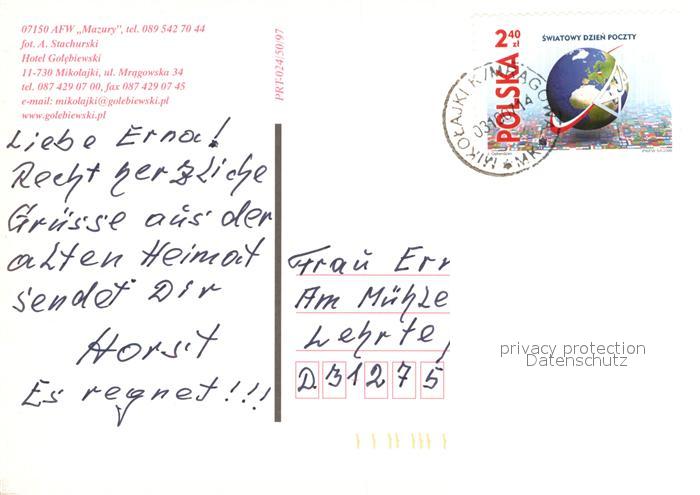 07150 AFW „Mazury", tel. 089 542 70 44
fot. A. Stachurski
Hotel Gołębiewski
11-730 Mikołajki, ul. Mrągowska 34
tel. 087 429 07 00, fax 087 429 07 45
e-mail: mikolajki@golebiewski.pl
www.golebiewski.pl
PRT-024/50/97
Liebe Erna!
Recht herzliche
Grüsse aus der
alten Heimat
sendet Dir
Horst
Es regnet!!!
POLSKA 2,40 zł
ŚWIATOWY DZIEŃ POCZTY
MIKOŁAJKI K/MRĄGOWA
Frau Ern
Am Mühle
Lehrte,
D. 31275
privacy protection
Datenschutz